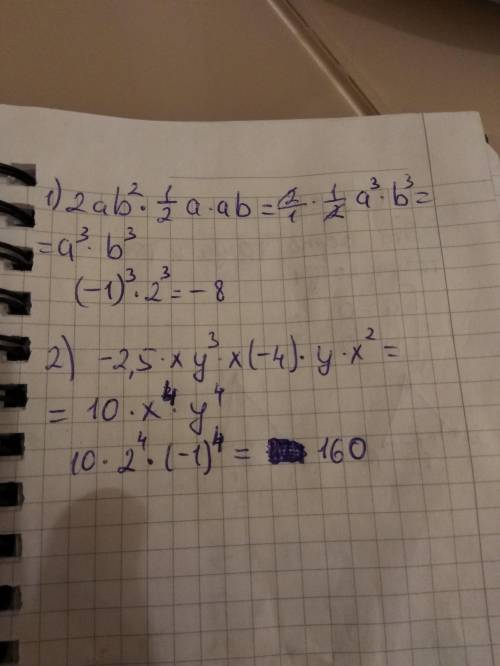 1) 2ab²·1/2 a·ab=2/1·1/2 a³·b³=
=a³·b³
(-1)³·2³=-8
2) -2,5·xy³·x(-4)·y·x²=
=10·x⁴·y⁴
10·2⁴·(-1)⁴= 160